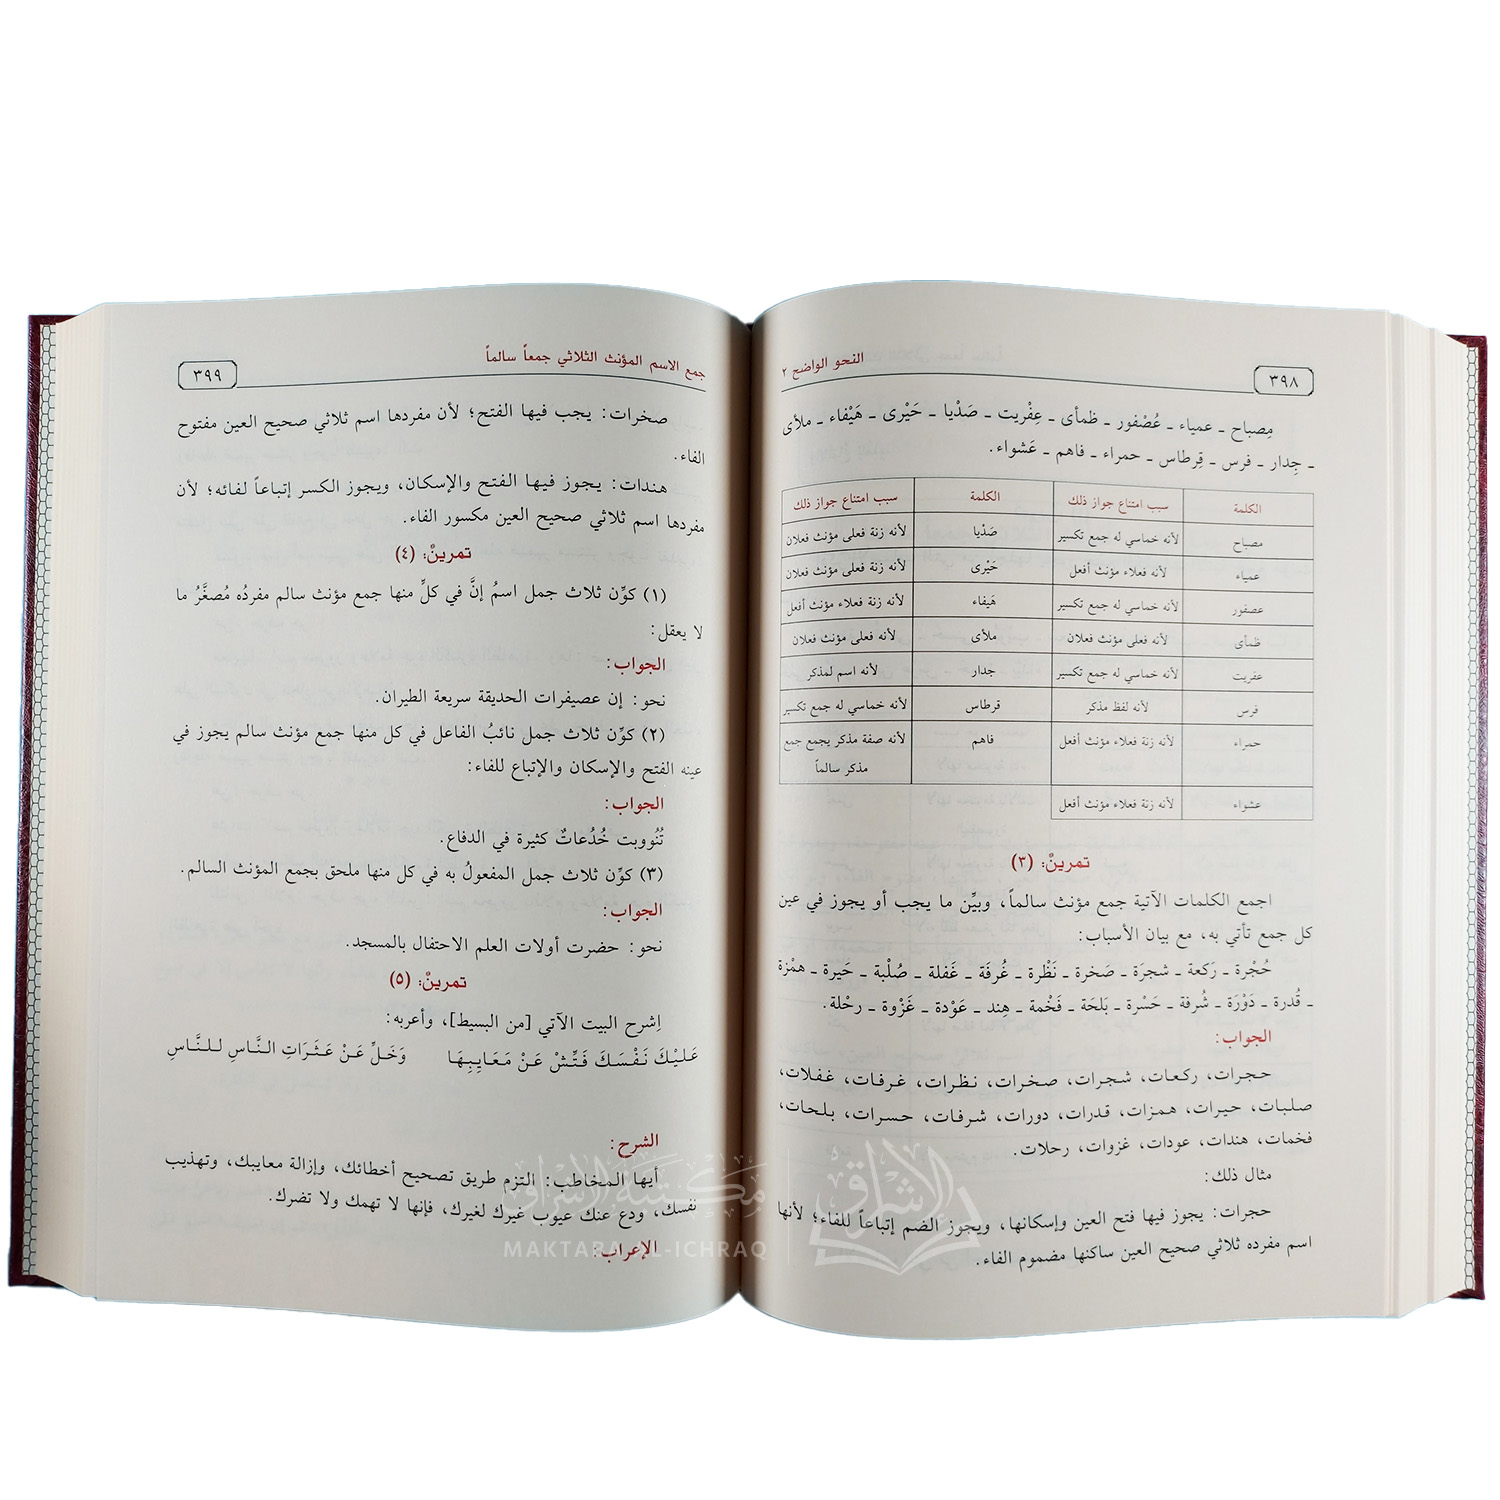 ٣٩٨
النحو الواضح ٢
مِصباح ـ عمياء ـ عُصْفور ـ ظمأى ـ عِفْريت ـ صَدْيا ـ حَيْرى ـ هَيْفاء ـ ملأى
ـ جِدار ـ فرس ـ قِرطاس ـ حمراء ـ فاهم ـ عَشواء.
الكلمة سبب امتناع جواز ذلك الكلمة سبب امتناع جواز ذلك
مصباح لأنه خماسي له جمع تكسير صَدْيا لأنه زنة فعلى مؤنث فعلان
عمياء لأنه فعلاء مؤنث أفعل حَيْرى لأنه زنة فعلى مؤنث فعلان
عصفور لأنه خماسي له جمع تكسير هَيفاء لأنه زنة فعلاء مؤنث أفعل
ظمأى لأنه فعلى مؤنث فعلان ملأى لأنه فعلى مؤنث فعلان
عفريت لأنه خماسي له جمع تكسير جدار لأنه اسم لمذكر
فرس لأنه لفظ مذكر قرطاس لأنه خماسي له جمع تكسير
حمراء لأنه زنة فعلاء مؤنث أفعل فاهم لأنه صفة مذكر يجمع جمع
مذكر سالماً
عشواء لأنه زنة فعلاء مؤنث أفعل
تمرينٌ: (٣)
اجمع الكلمات الآتية جمع مؤنث سالماً، وبيِّن ما يجب أو يجوز في عين
كل جمع تأتي به، مع بيان الأسباب:
حُجْرة ـ رَكعة ـ شجرَة ـ صَخرة ـ نَظْرة ـ غُرفَة ـ غَفلة ـ صُلْبة ـ حَيرة ـ همْزة
ـ قُدرة ـ دَوْرَة ـ شُرفة ـ حَسْرة ـ بَلحَة ـ فَخْمة ـ هِند ـ عَوْدة ـ غَزْوة ـ رحْلة.
الجواب:
حجرات، ركعات، شجرات، صخرات، نظرات، غرفات، غفلات،
صلبات، حيرات، همزات، قدرات، دورات، شرفات، حسرات، بلحات،
فخمات، هندات، عودات، غزوات، رحلات.
مثال ذلك:
حجرات: يجوز فيها فتح العين وإسكانها، ويجوز الضم إتباعاً للفاء؛ لأنها
اسم مفرده ثلاثي صحيح العين ساكنها مضموم الفاء.
جمع الاسم المؤنث الثلاثي جمعاً سالماً
٣٩٩
صخرات: يجب فيها الفتح؛ لأن مفردها اسم ثلاثي صحيح العين مفتوح
الفاء.
هندات: يجوز فيها الفتح والإسكان، ويجوز الكسر إتباعاً لفائه؛ لأن
مفردها اسم ثلاثي صحيح العين مكسور الفاء.
تمرينٌ: (٤)
(١) كوِّن ثلاث جمل اسمُ إنَّ في كلٍّ منها جمع مؤنث سالم مفردُه مُصغَّرُ ما
لا يعقل:
الجواب:
نحو: إن عصيفرات الحديقة سريعة الطيران.
(٢) كوِّن ثلاث جمل نائبُ الفاعل في كل منها جمع مؤنث سالم يجوز في
عينه الفتح والإسكان والإتباع للفاء:
الجواب:
تُنُووبت خُدُعاتٌ كثيرة في الدفاع.
(٣) كوِّن ثلاث جمل المفعولُ به في كل منها ملحق بجمع المؤنث السالم.
الجواب:
نحو: حضرت أولات العلم الاحتفال بالمسجد.
تمرينٌ: (٥)
اِشرح البيت الآتي [من البسيط]، وأعربه:
عَلَيْكَ نَفْسَكَ فَتِّشْ عَنْ مَعَايِبِهَا وَخَلِّ عَنْ عَثَرَاتِ النَّاسِ لِلنَّاسِ
الشرح:
أيها المخاطب: التزم طريق تصحيح أخطائك، وإزالة معايبك، وتهذيب
نفسك، ودع عنك عيوب غيرك لغيرك، فإنها لا تهمك ولا تضرك.
الإعراب:
مكتبة الإشراق
MAKTABA AL-ICHRAQ
الإشراق